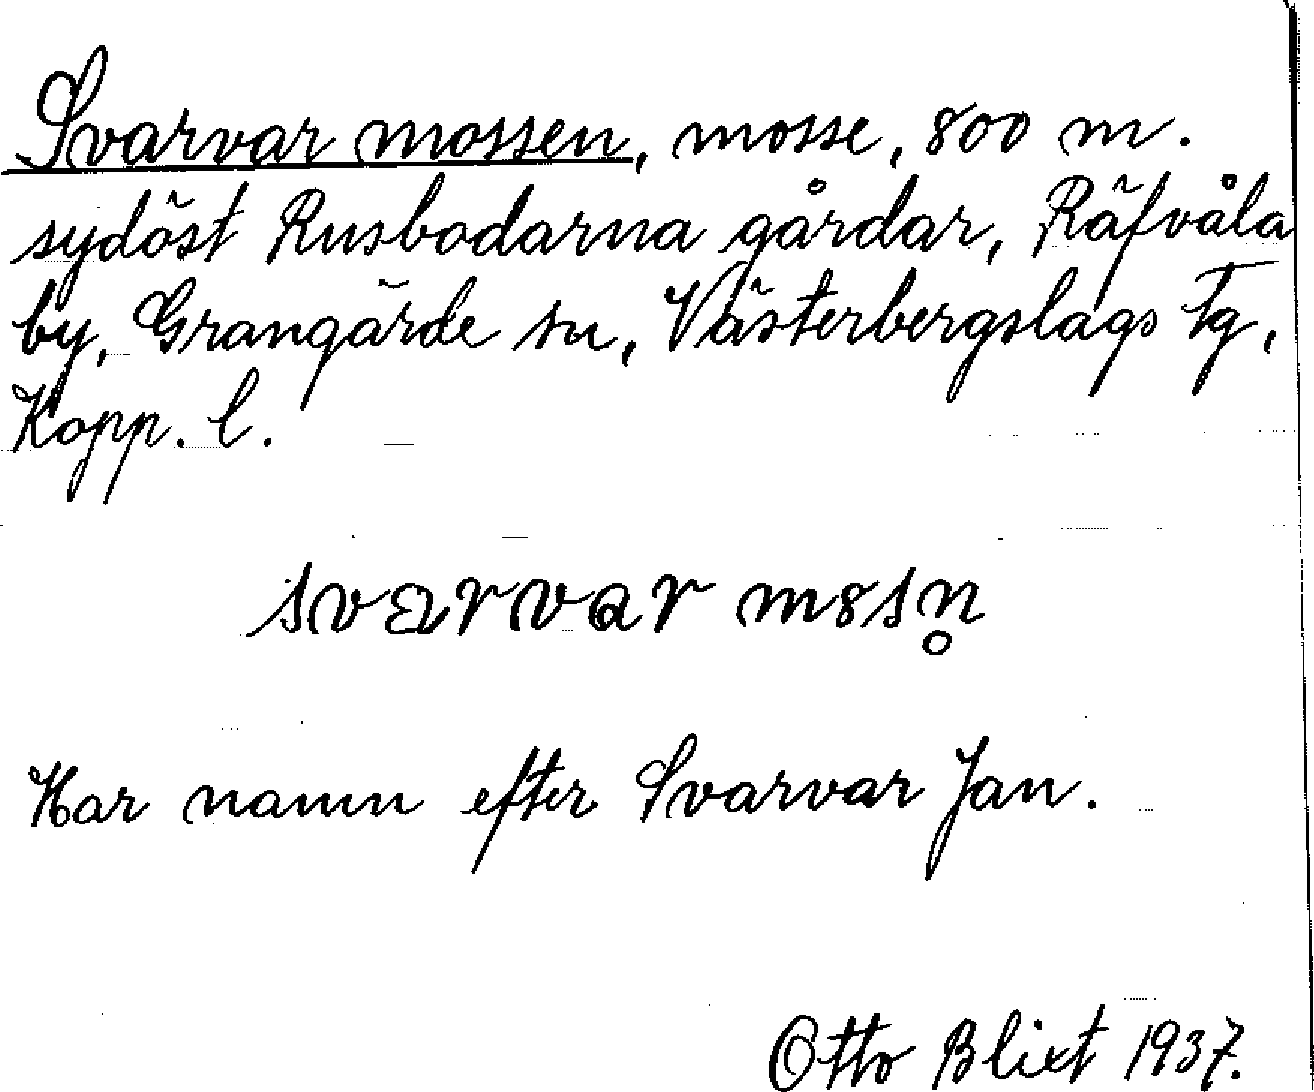 Svarvar mossen, mosse, 800 m.
sydöst Rusbodarna gårdar, Räfvåla
by, Grangärde sn, Västerbergslags Tg,
Kopp. l.
svarvar m8sn̥
Har namn efter Svarvar Jan.
Otto Blixt 1937.